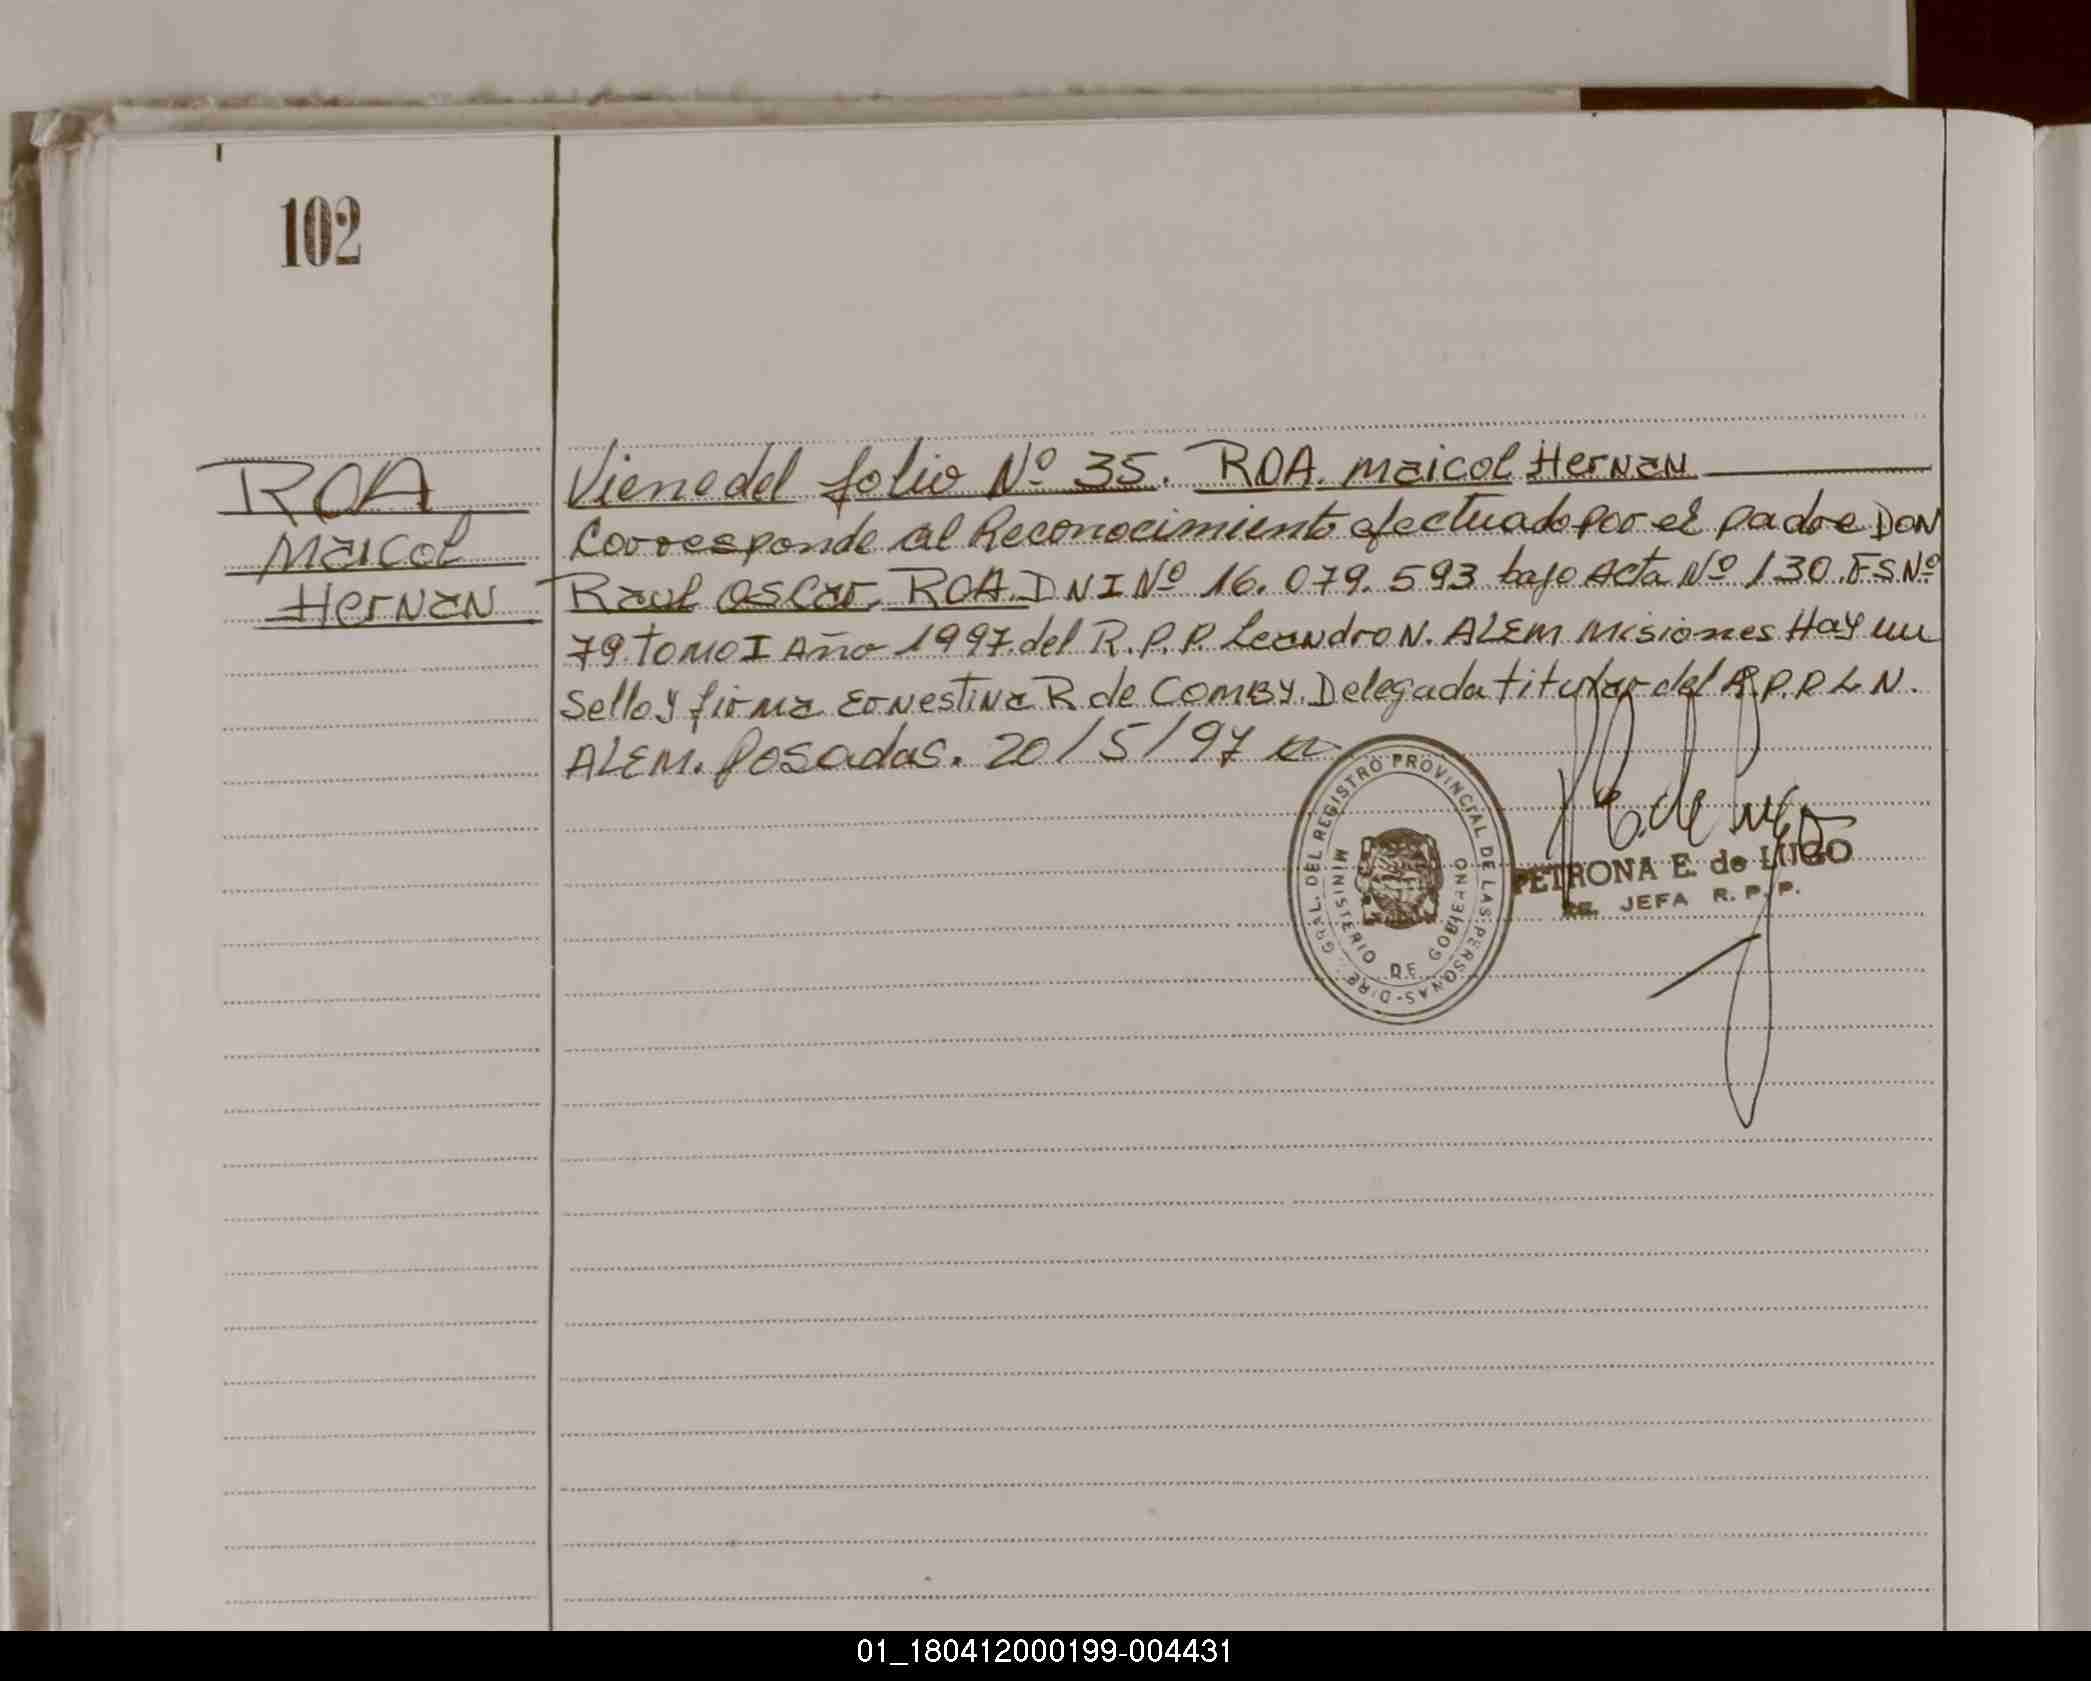 102
ROA
Maicol
Hernan
Viene del folio Nº 35. ROA. Maicol Hernan
Corresponde al Reconocimiento efectuado por el padre DON
Raul Oscar. ROA. DNI Nº 16.079.593 bajo Acta Nº 130. FS Nº
79. TOMO I Año 1997. del R.P.P. Leandro N. ALEM Misiones Hay un
Sello y firma Ernestina R de COMBY. Delegada titular del R.P.P L N.
ALEM. Posadas. 20/5/97
DIRE. GRAL. DEL REGISTRO PROVINCIAL DE LAS PERSONAS-
MINISTERIO DE GOBIERNO
PETRONA E. de LUGO
JEFA R. P. P.
01_180412000199-004431